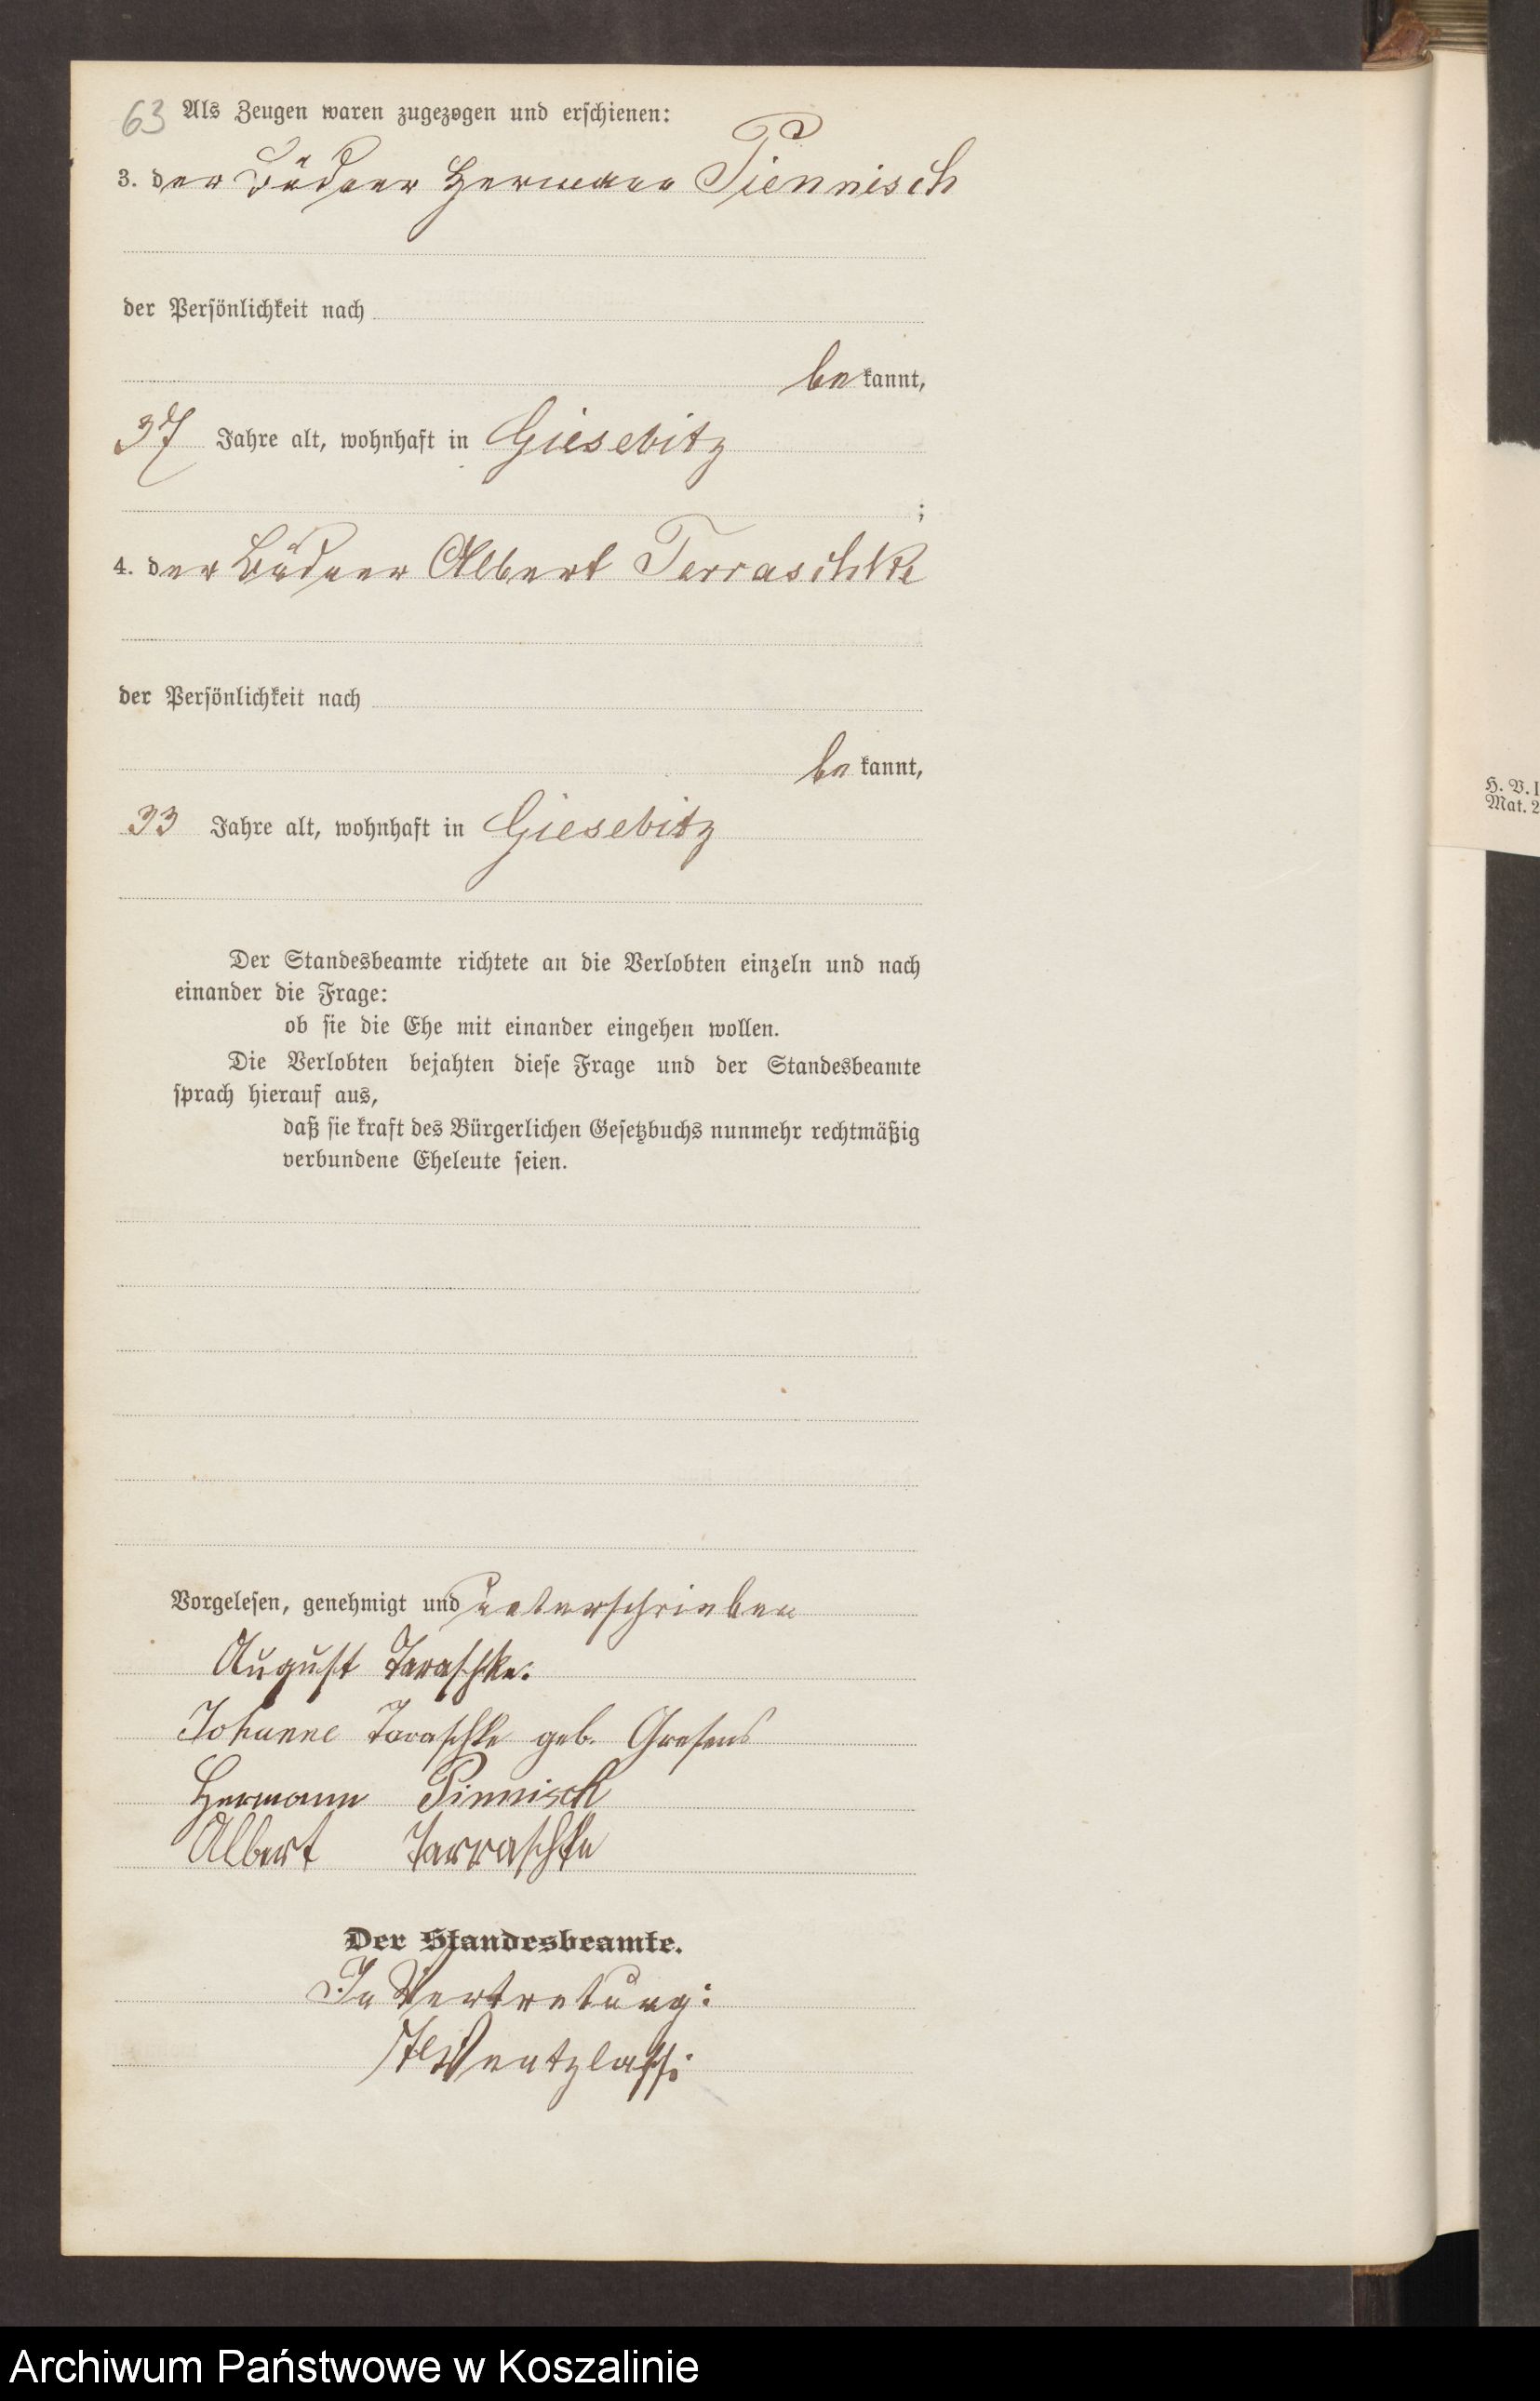 63 Als Zeugen waren zugezogen und erschienen:
3. der Büdner Hermann Piennisch
der Persönlichkeit nach
be kannt,
37 Jahre alt, wohnhaft in Giesebitz
;
4. der Büdner Albert Tarraschke
der Persönlichkeit nach
be kannt,
33 Jahre alt, wohnhaft in Giesebitz
Der Standesbeamte richtete an die Verlobten einzeln und nach
einander die Frage:
ob sie die Ehe mit einander eingehen wollen.
Die Verlobten bejahten diese Frage und der Standesbeamte
sprach hierauf aus,
daß sie kraft des Bürgerlichen Gesetzbuchs nunmehr rechtmäßig
verbundene Eheleute seien.
Vorgelesen, genehmigt und unterschrieben
August Taraschke.
Johanne Taraschke geb. Gresens
Hermann Pinnisch
Albert Tarraschke
Der Standesbeamte.
In Vertretung:
Wentzlaff.
H. V. I
Mat. 2
Archiwum Państwowe w Koszalinie